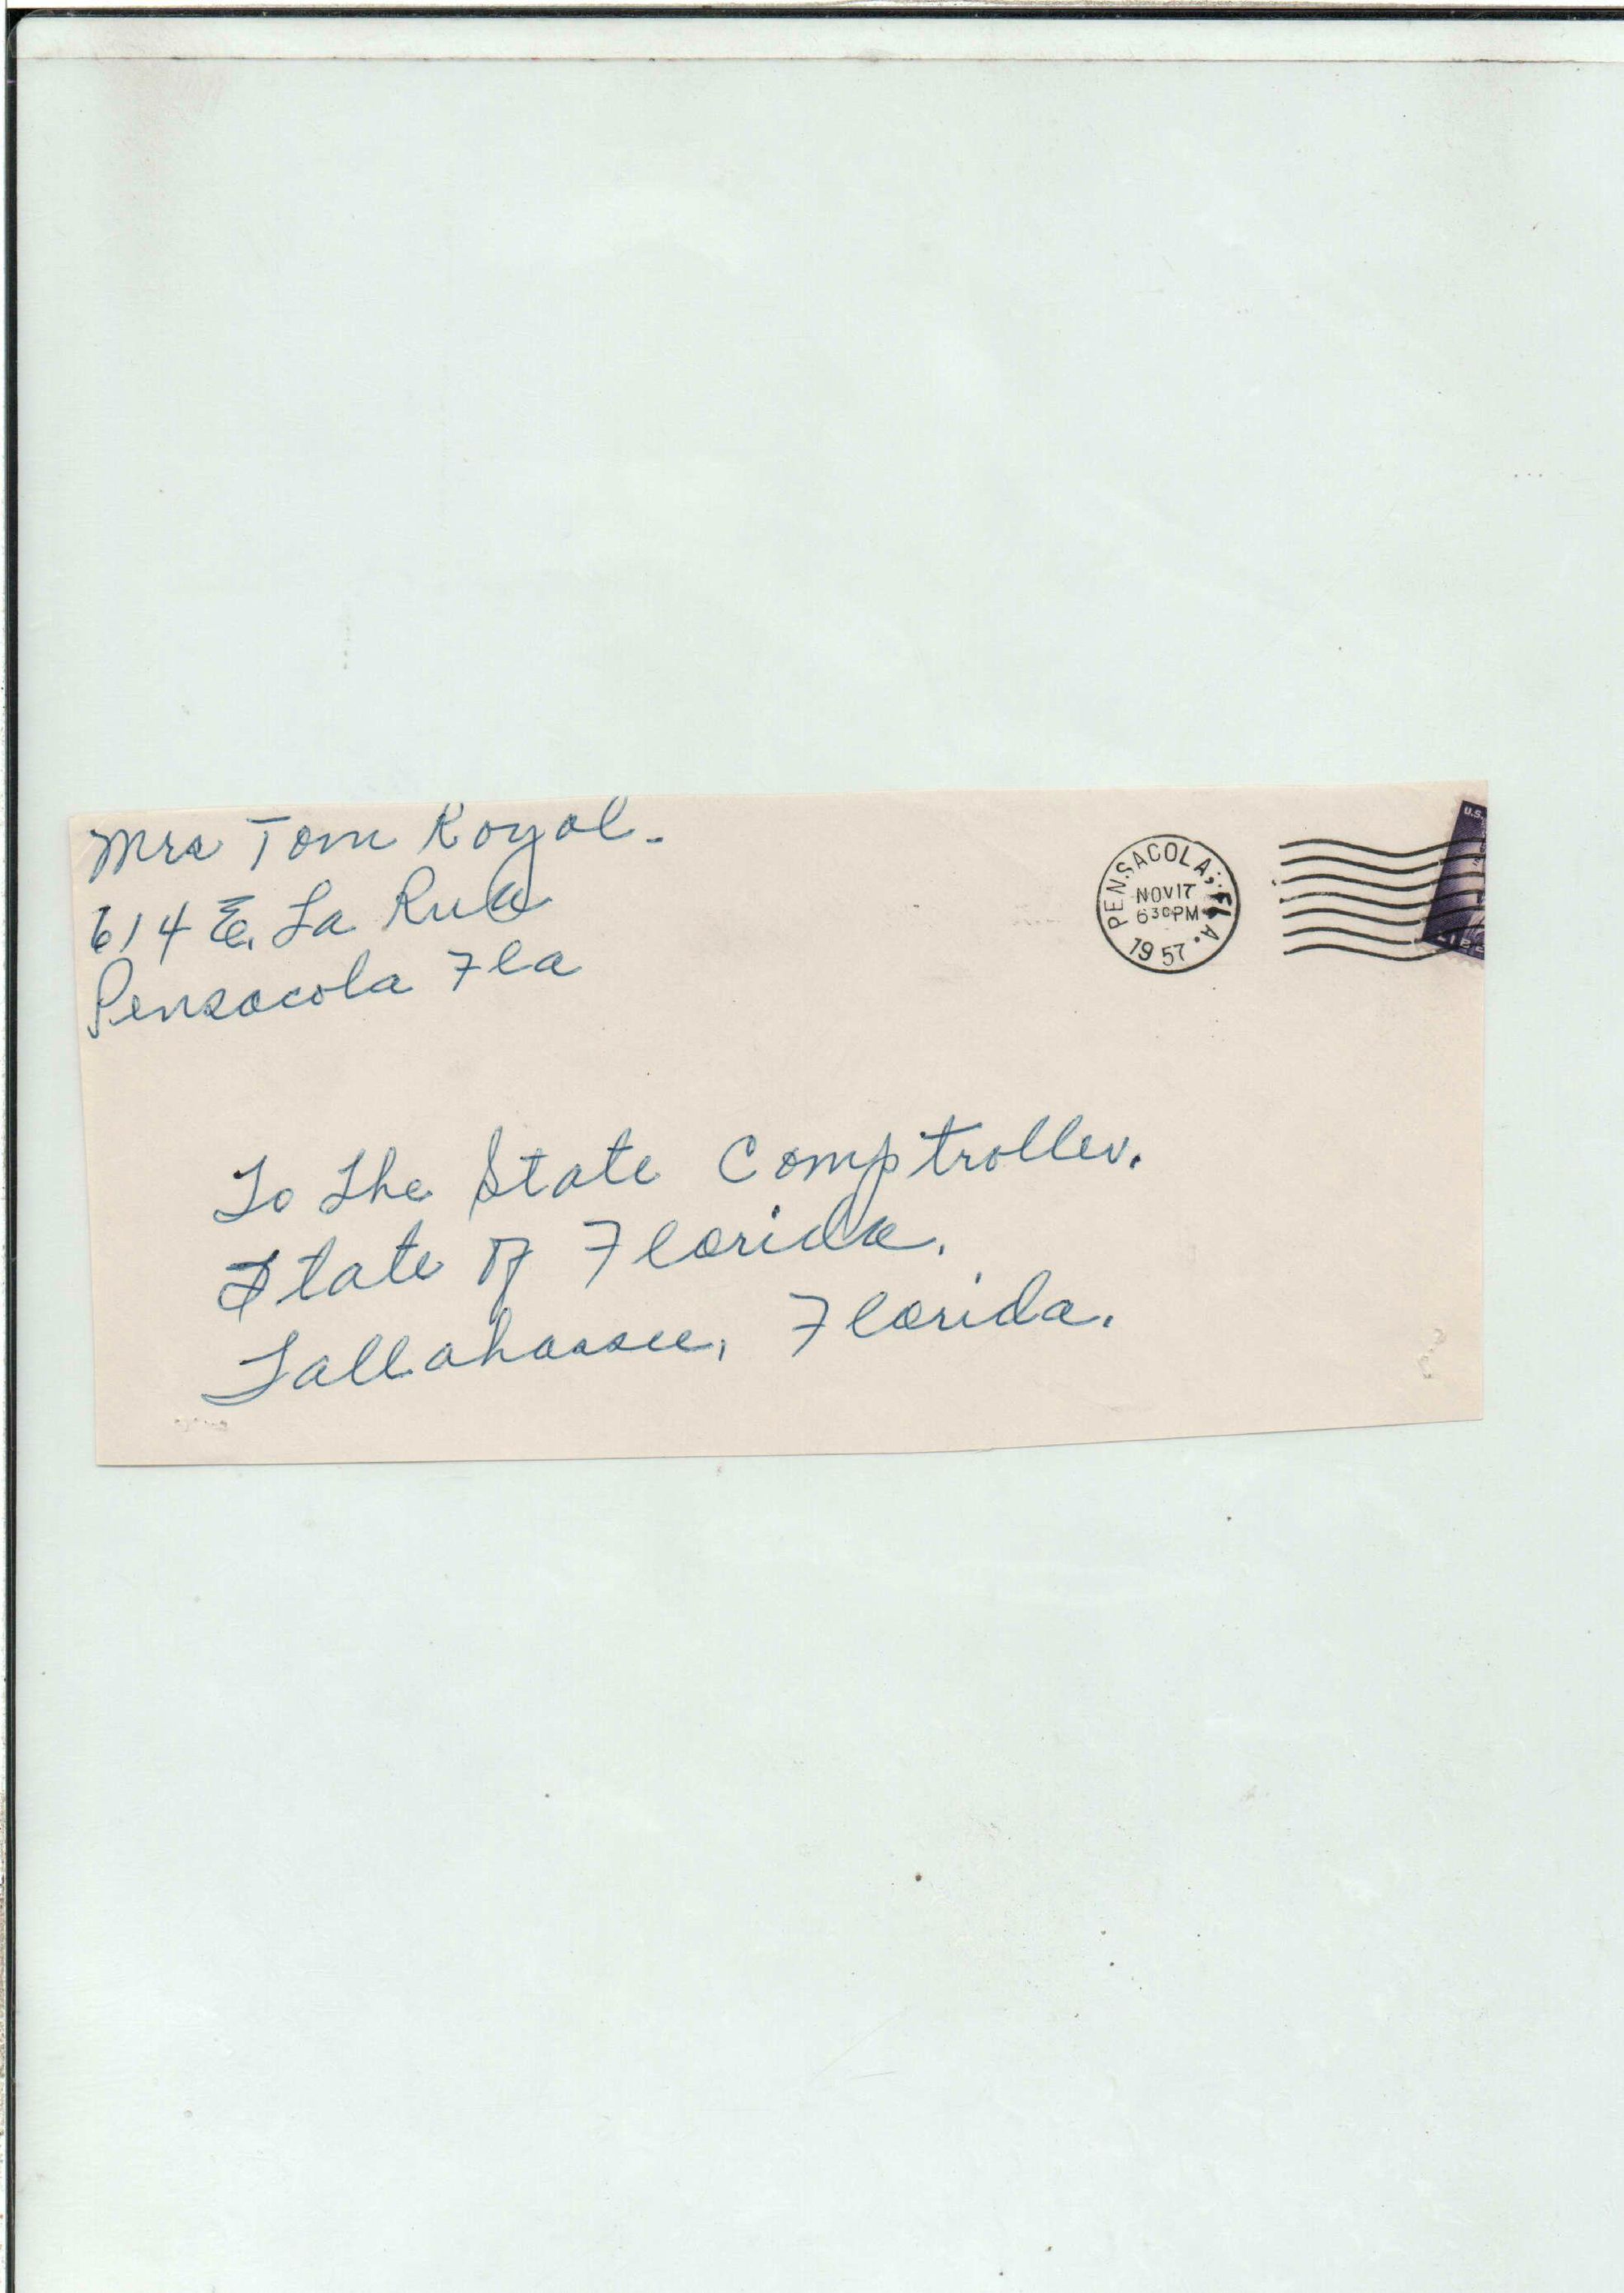 Mrs Tom Royal.
614 E. La Rua
Pensacola Fla
PENSACOLA, FLA.
NOV 17
630 PM
1957
U.S.
To The State Comptroller.
State of Florida.
Tallahassee, Florida.